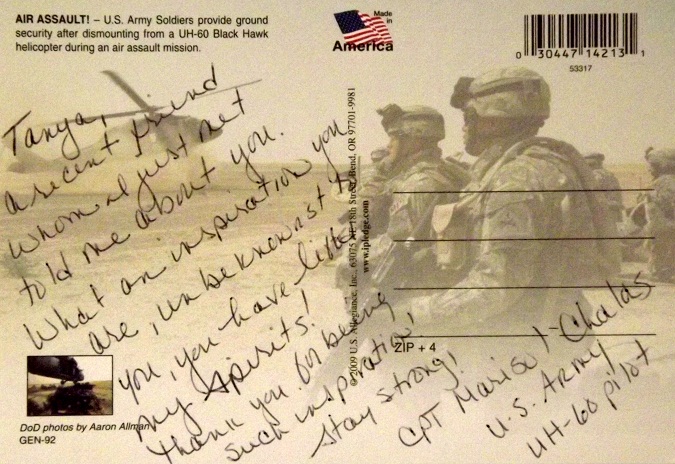 AIR ASSAULT! – U.S. Army Soldiers provide ground
security after dismounting from a UH-60 Black Hawk
helicopter during an air assault mission.
Made
in
America
0 30447 14213 1
53317
Tanya,
a recent friend
whom I just met
told me about you.
What an inspiration you
are, unbeknownst to
you, you have lifted
my spirits!
Thank you for being
such inspiration,
stay strong!
CPT Marisol Chalas
U.S. Army
UH-60 pilot
© 2009 U.S. Allegiance, Inc., 63075 NE 18th Street, Bend, OR 97701-9981
www.ipledge.com
ZIP + 4
DoD photos by Aaron Allman
GEN-92